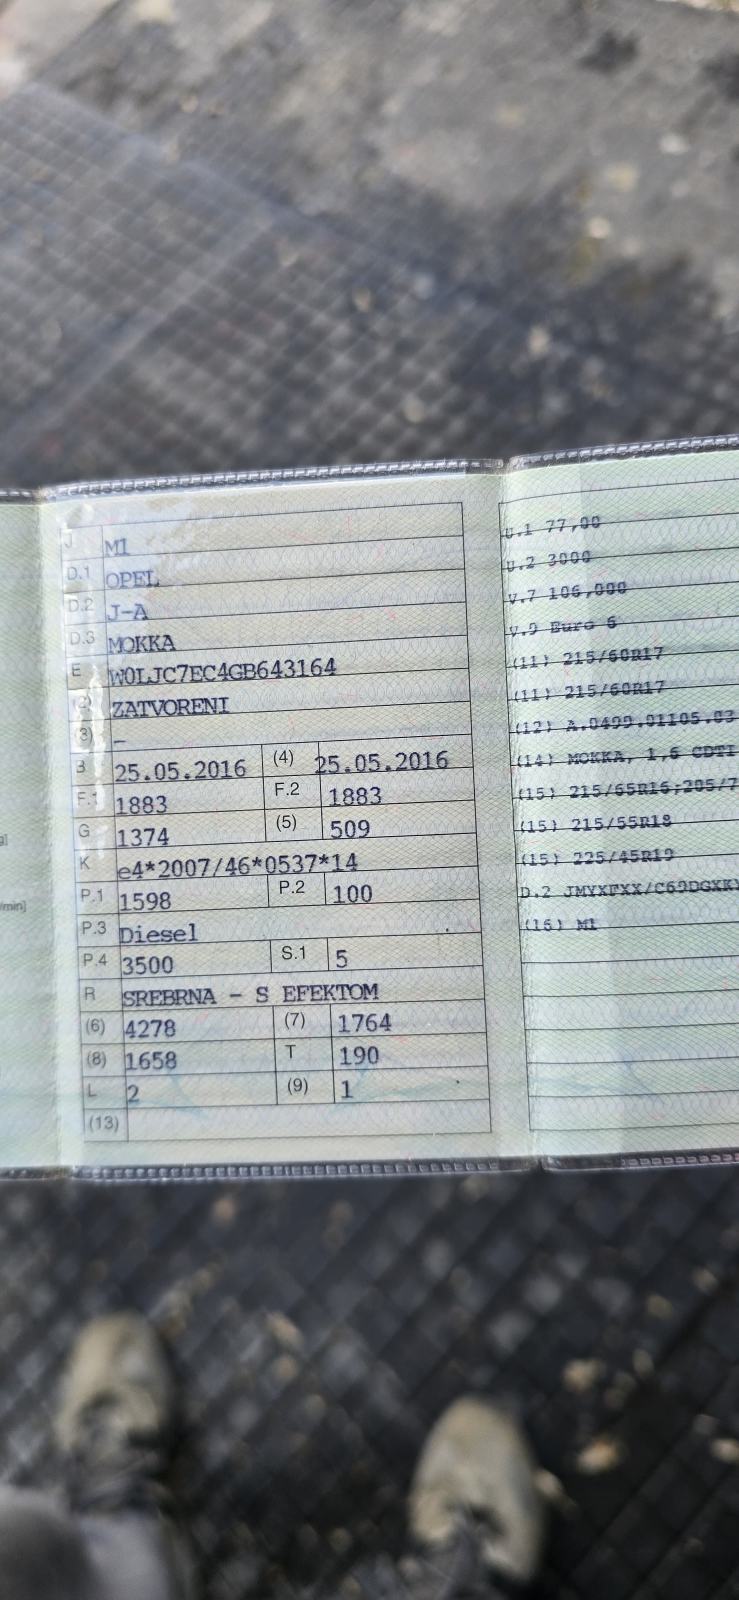 J M1
D.1 OPEL
D.2 J-A
D.3 MOKKA
E W0LJC7EC4GB643164
(2) ZATVORENI
(3) -
B 25.05.2016 (4) 25.05.2016
F.1 1883 F.2 1883
G 1374 (5) 509
K e4*2007/46*0537*14
P.1 1598 P.2 100
P.3 Diesel
P.4 3500 S.1 5
R SREBRNA - S EFEKTOM
(6) 4278 (7) 1764
(8) 1658 T 190
L 2 (9) 1
(13)
U.1 77,00
U.2 3000
V.7 106,000
V.9 Euro 6
(11) 215/60R17
(11) 215/60R17
(12) A.0499.01105.03
(14) MOKKA, 1,6 CDTI
(15) 215/65R16;205/7
(15) 215/55R18
(15) 225/45R19
D.2
(16) M1
/min]